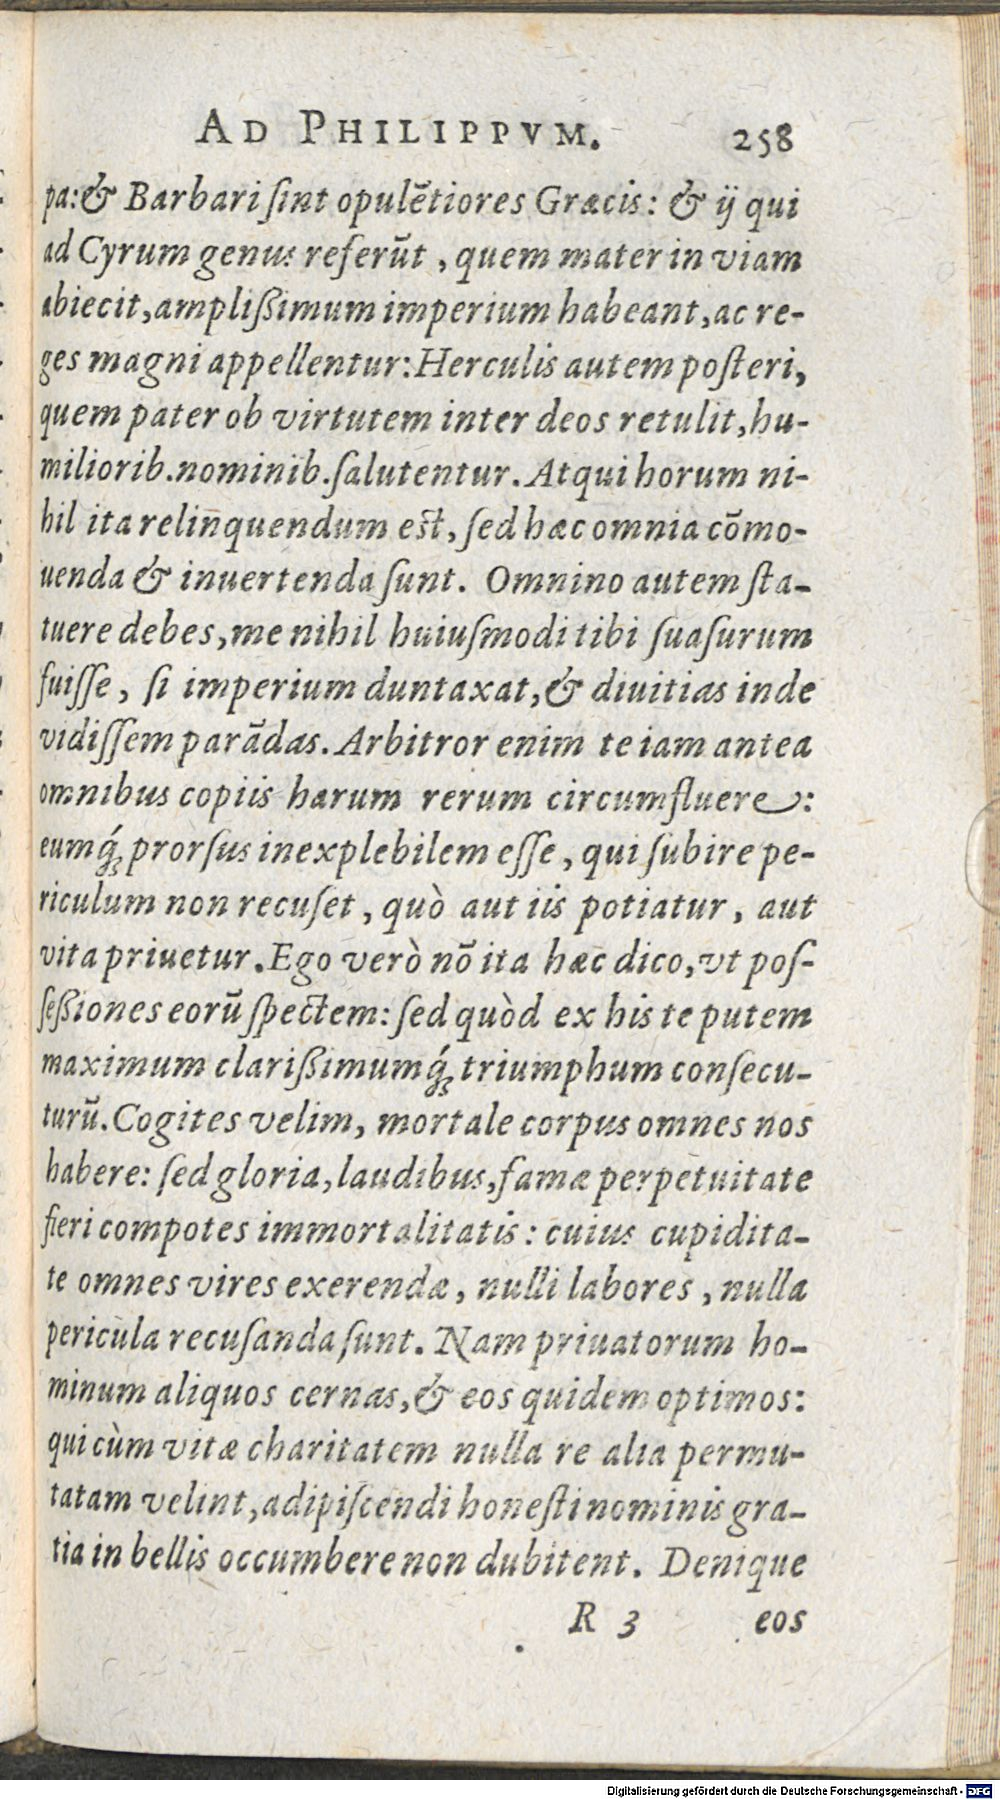 AD PHILIPPVM. 258
pa:& Barbari ſint opulẽtiores Græcis: & ij qui
ad Cyrum genus referũt, quem mater in viam
abiecit, ampliſſimum imperium habeant, ac re-
ges magni appellentur: Herculis autem poſteri,
quem pater ob virtutem inter deos retulit, hu-
miliorib. nominib. ſalutentur. Atqui horum ni-
hil ita relinquendum eſt, ſed hæc omnia cõmo-
uenda & inuertenda ſunt. Omnino autem ſta-
tuere debes, me nihil huiuſmodi tibi ſuaſurum
fuiſſe, ſi imperium duntaxat, & diuitias inde
vidiſſem parãdas. Arbitror enim te iam antea
omnibus copiis harum rerum circumfluere:
eumq́; prorſus inexplebilem eſſe, qui ſubire pe-
riculum non recuſet, quò aut iis potiatur, aut
vita priuetur. Ego verò nõ ita hæc dico, vt poſ-
ſeßiones eorũ ſpectem: ſed quòd ex his te putem
maximum clarißimumq́; triumphum conſecu-
turũ. Cogites velim, mortale corpus omnes nos
habere: ſed gloria, laudibus, famæ perpetuitate
fieri compotes immortalitatis: cuius cupidita-
te omnes vires exerendæ, nulli labores, nulla
pericula recuſanda ſunt. Nam priuatorum ho-
minum aliquos cernas, & eos quidem optimos:
qui cùm vitæ charitatem nulla re alia permu-
tatam velint, adipiſcendi honeſti nominis gra-
tia in bellis occumbere non dubitent. Denique
R 3 eos
Digitalisierung gefördert durch die Deutsche Forschungsgemeinschaft - DFG